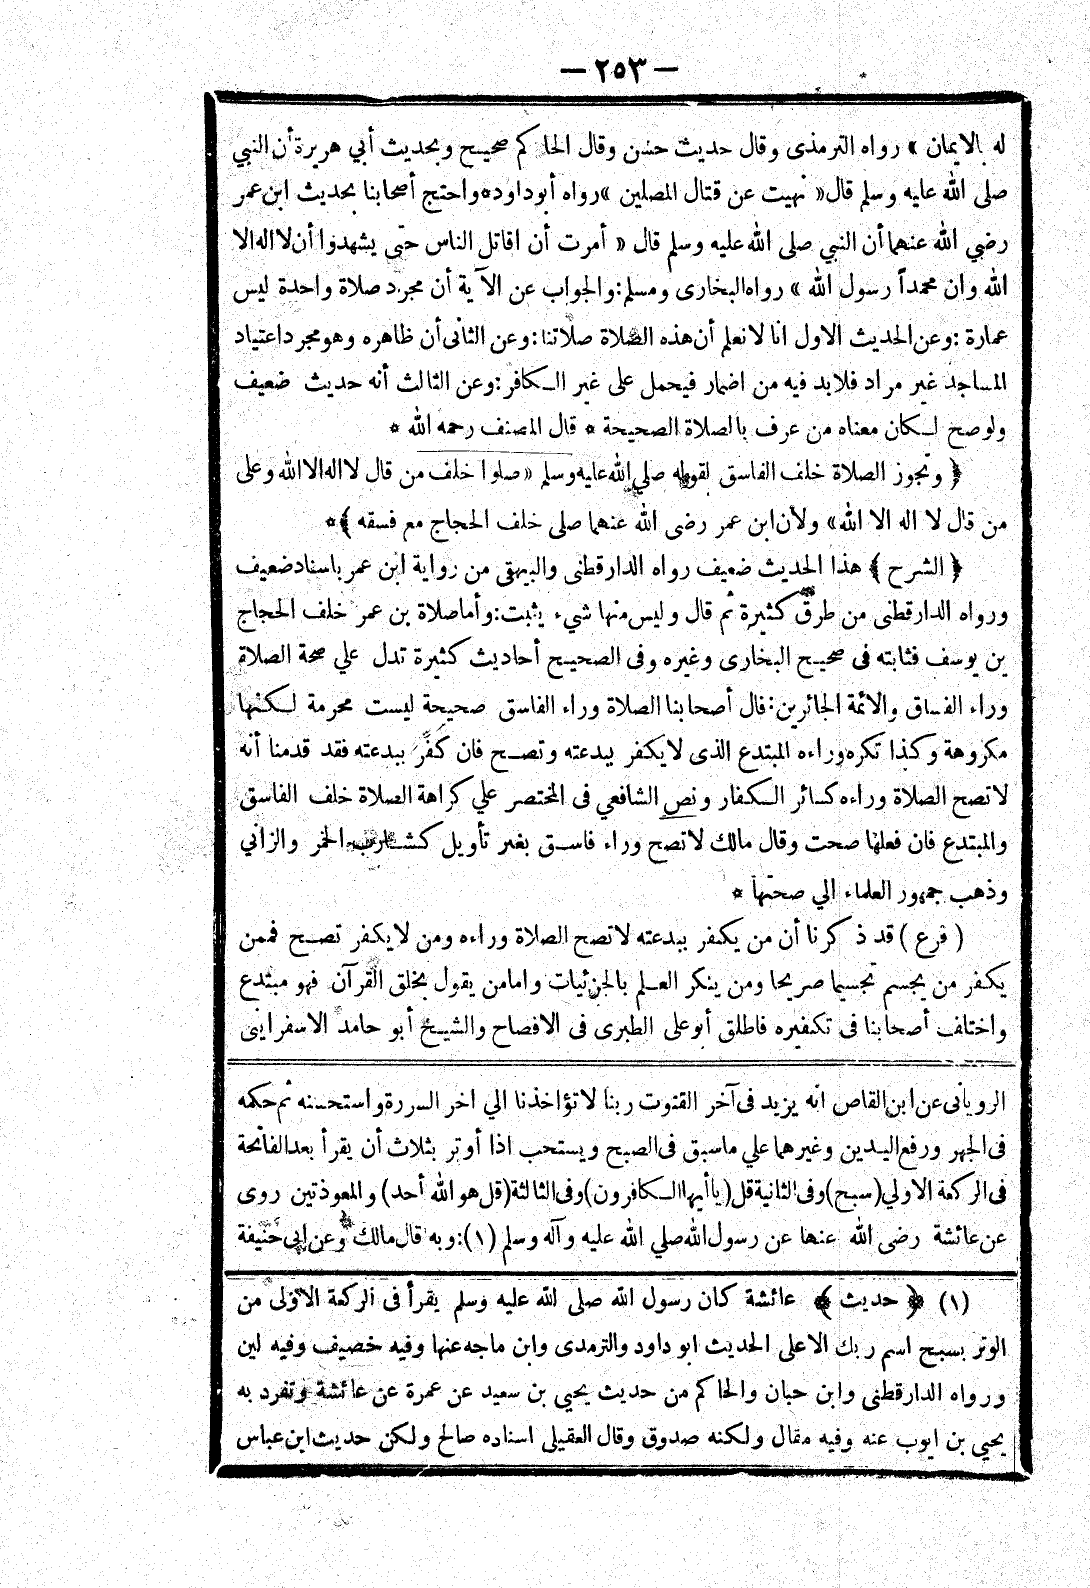 — ٢٥٣ —
له بالايمان » رواه الترمذى وقال حديث حسن وقال الحاكم صحيح وبحديث أبي هريرة أن النبي
صلى الله عليه وسلم قال « نهيت عن قتال المصلين » رواه أبو داود * واحتج أصحابنا بحديث ابن عمر
رضي الله عنهما أن النبي صلى الله عليه وسلم قال « أمرت أن اقاتل الناس حتى يشهدوا أن لا اله الا
الله وان محمداً رسول الله » رواه البخارى ومسلم : والجواب عن الآية أن مجرد صلاة واحدة ليس
عمارة : وعن الحديث الاول انا لا نعلم أن هذه الصلاة صلاتنا : وعن الثانى أن ظاهره وهو مجرد اعتياد
المساجد غير مراد فلا بد فيه من اضمار فيحمل على غير الكافر : وعن الثالث أنه حديث ضعيف
ولو صح لكان معناه من عرف بالصلاة الصحيحة * قال المصنف رحمه الله *
﴿ وتجوز الصلاة خلف الفاسق لقوله صلي الله عليه وسلم « صلوا خلف من قال لا اله الا الله وعلى
من قال لا اله الا الله » ولأن ابن عمر رضى الله عنهما صلى خلف الحجاج مع فسقه ﴾ *
﴿ الشرح ﴾ هذا الحديث ضعيف رواه الدارقطنى والبيهقى من رواية ابن عمر باسناد ضعيف
ورواه الدارقطنى من طرق كثيرة ثم قال وليس منها شيء يثبت : وأما صلاة بن عمر خلف الحجاج
بن يوسف فثابته فى صحيح البخارى وغيره وفى الصحيح أحاديث كثيرة تدل علي صحة الصلاة
وراء الفساق والائمة الجائرين : قال أصحابنا الصلاة وراء الفاسق صحيحة ليست محرمة لكنها
مكروهة وكذا تكره وراءه المبتدع الذى لا يكفر ببدعته وتصح فان كفر ببدعته فقد قدمنا أنه
لا تصح الصلاة وراءه كسائر الكفار ونص الشافعي فى المختصر علي كراهة الصلاة خلف الفاسق
والمبتدع فان فعلها صحت وقال مالك لا تصح وراء فاسق بغير تأويل كشارب الخمر والزاني
وذهب جمهور العلماء الي صحتها *
( فرع ) قد ذكرنا أن من يكفر ببدعته لا تصح الصلاة وراءه ومن لا يكفر تصح فممن
يكفر من يجسم تجسيما صريحا ومن ينكر العلم بالجزئيات وامامن يقول بخلق القرآن فهو مبتدع
واختلف أصحابنا فى تكفيره فاطلق أبو على الطبرى فى الافصاح والشيخ أبو حامد الاسفراينى
الرويانى عن ابن القاص انه يزيد فى آخر القنوت ربنا لا تؤاخذنا الي اخر السررة واستحسنه ثم حكمه
فى الجهر ورفع اليدين وغيرهما علي ماسبق فى الصبح ويستحب اذا أوتر بثلاث أن يقرأ بعد الفاتحة
فى الركعة الاولي (سبح) وفى الثانية قل (يا أيها الكافرون) وفى الثالثة (قل هو الله أحد) والمعوذتين روى
عن عائشة رضى الله عنها عن رسول الله صلي الله عليه وآله وسلم (١) : وبه قال مالك وعن ابى حنيفة
(١) ﴿ حديث ﴾ عائشة كان رسول الله صلى الله عليه وسلم يقرأ فى الركعة الاولى من
الوتر بسبح اسم ربك الاعلى الحديث ابو داود والترمدى وابن ماجه عنها وفيه خصيف وفيه لين
ورواه الدارقطنى وابن حبان والحاكم من حديث يحيي بن سعيد عن عمرة عن عائشة وتفرد به
يحيي بن ايوب عنه وفيه مقال ولكنه صدوق وقال العقيلى اسناده صالح ولكن حديث ابن عباس